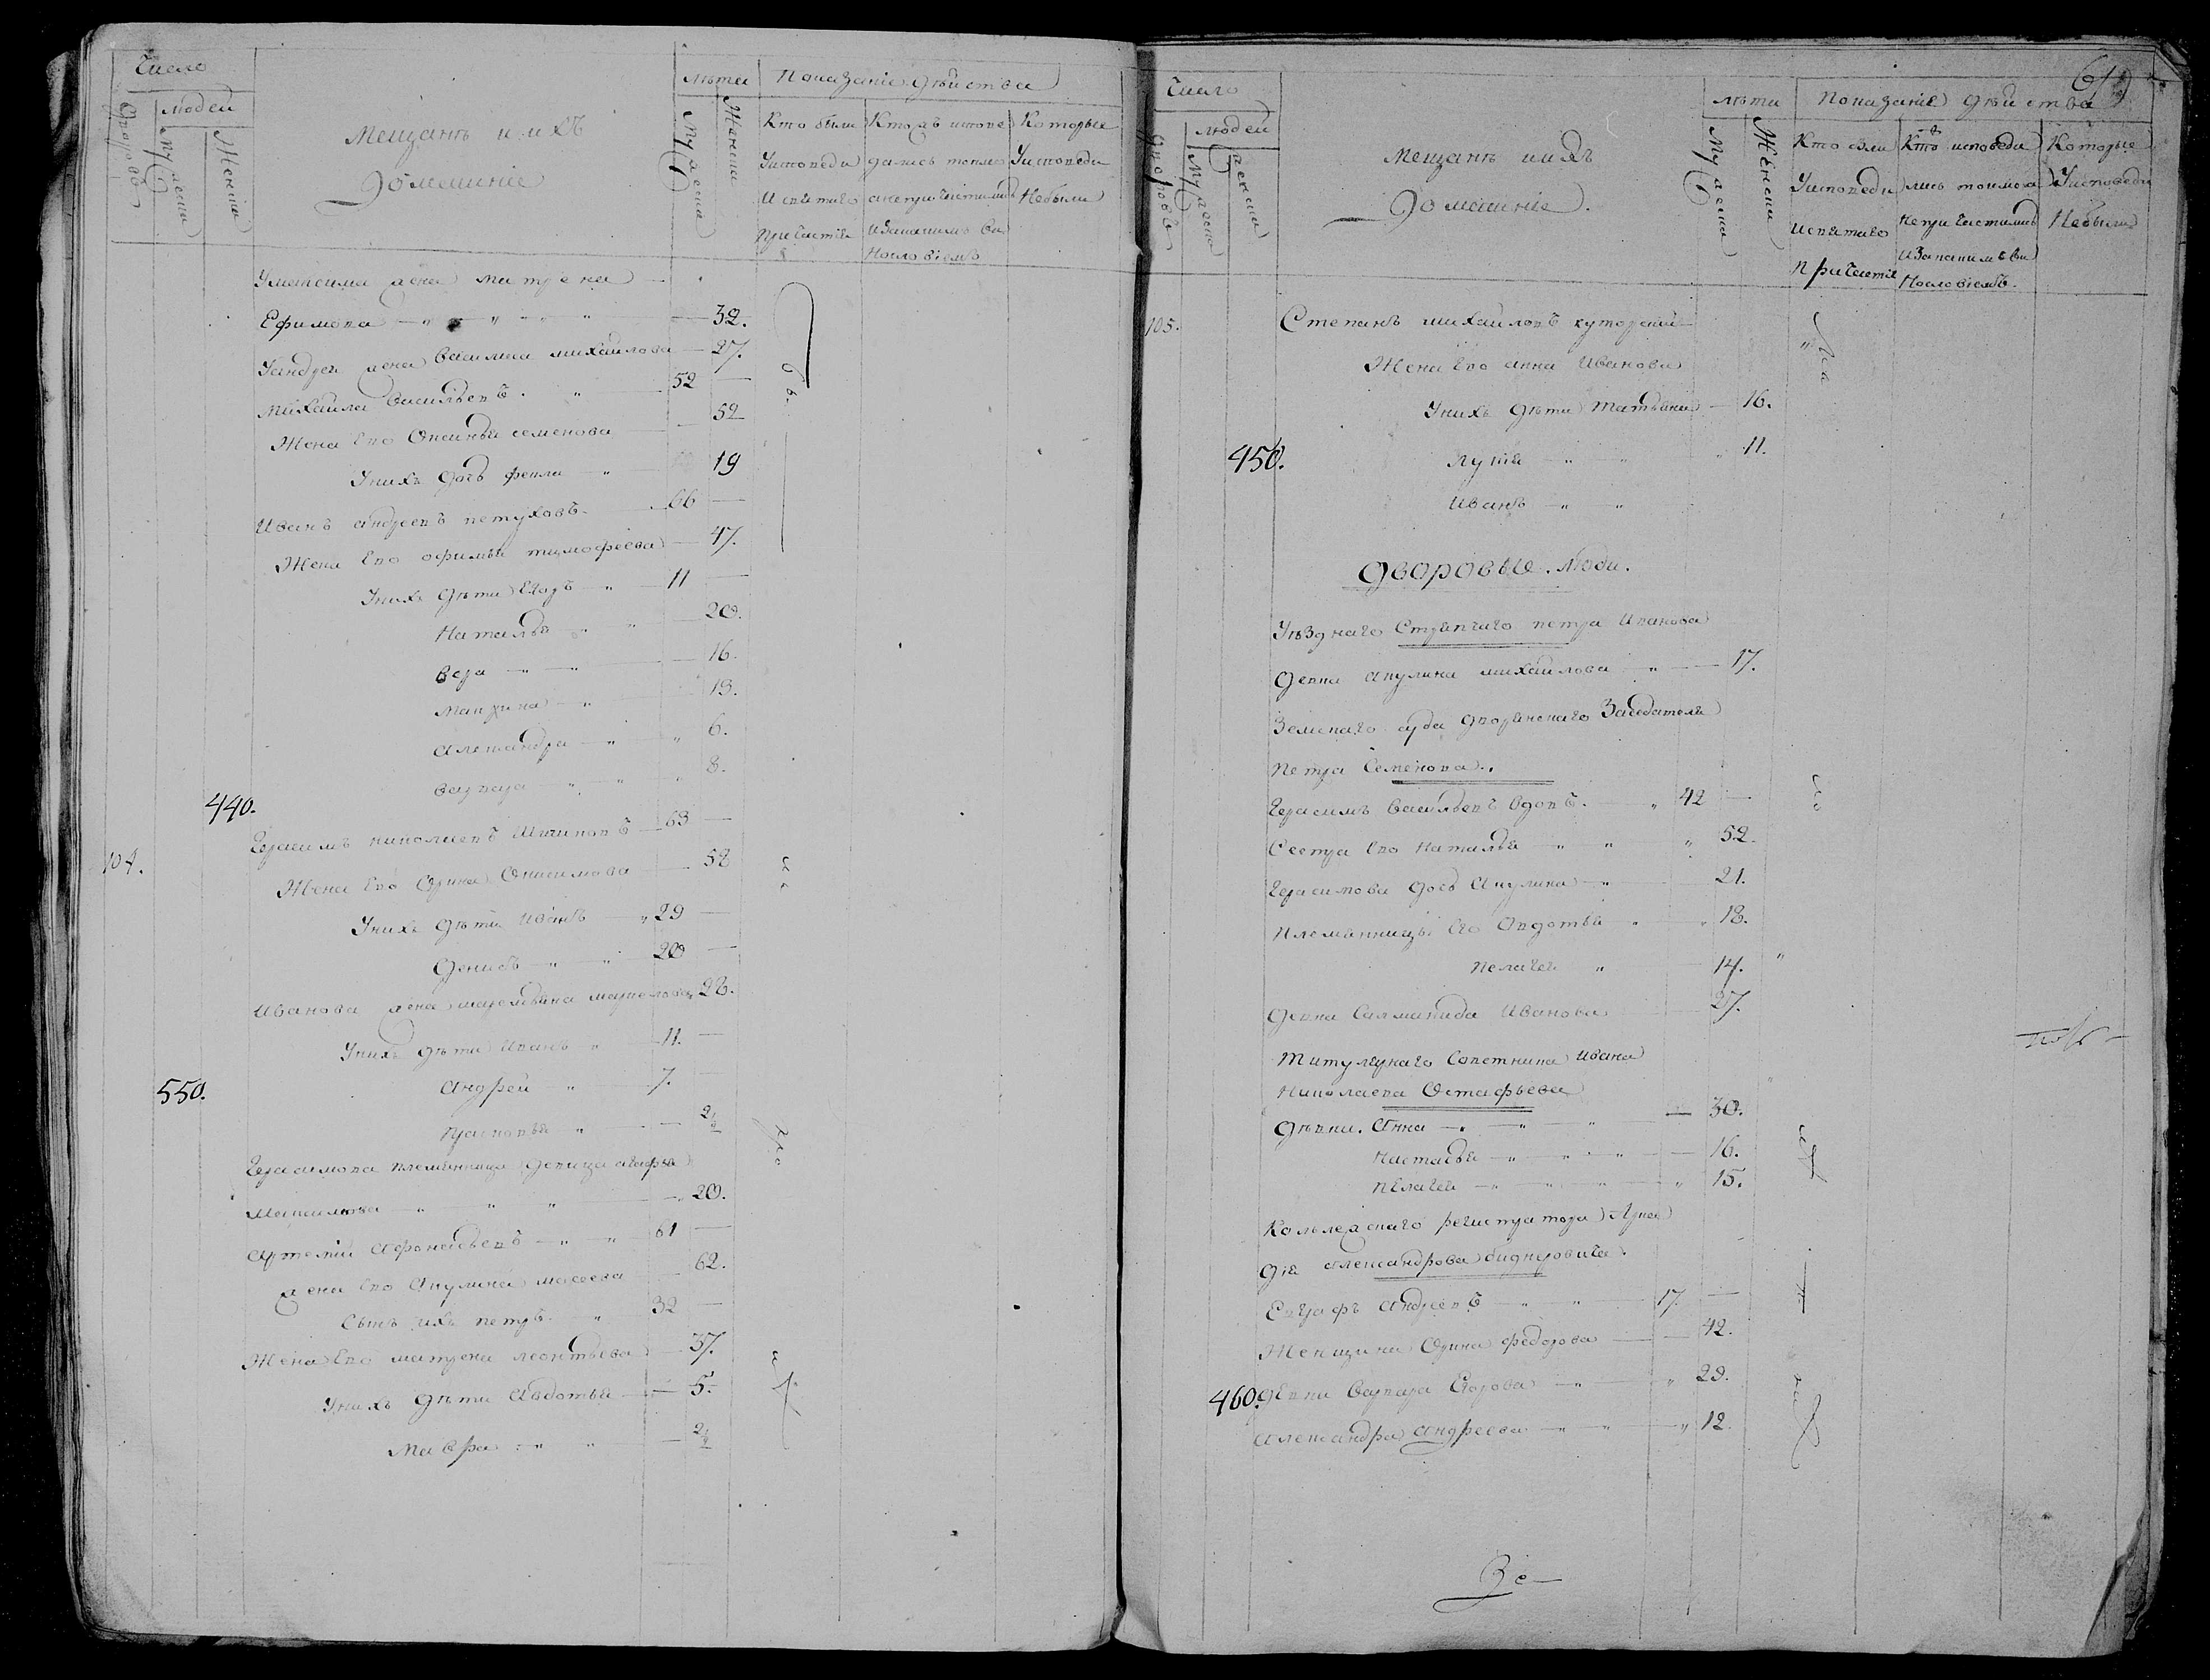 Число
Людей
Дворовъ
Мужска
Женска
Мещанъ и ихъ
Домашние
Лѣта
Мужска
Женска
Показание дѣйства
Кто были
Уисповеди
И святаго
причастия
Кто исповедались токмо
а непричастились
и закакимъ ви
нословiемъ
Которые
Уисповеди
Небыли
Умаксима жена Матрена
Ефимова 32.
Уандрея жена Василиса Михайлова 27.
Михайла Васильевъ. 52
Жена Ево Оксинья семенова 52
Уних дочь Фекла 19
Иванъ Андреевъ петуховъ. 66
Жена Ево офимья тимофеева 47.
Унихъ дѣти Егоръ 11
Наталья 20.
вера 16.
Макрина 13.
александра 6.
варвара 8.
440.
104.
Герасимъ николаевъ Шишковъ 63
Жена Ево Орина Онисимова 58
Унихъ дѣти Иванъ 29
Денисъ 20
Иванова жена маремьяна маркелова 28.
Унихъ дѣти Иванъ 11.
550.
Андрей 7.
Прасковья 2
Герасимова племянница девица агафья
Максимова 20.
Артемий Афонасьевъ 61
жена Ево Акулина мосеева 62.
Сынъ ихъ петръ. 32
Жена Ево матрена леонтьева 37.
Унихъ дѣти Авдотья 5.
Мавра 2
619
Число
Людей
Дворовъ
Мужска
женска
Мещанъ иихъ
Домашние.
Лѣта
Мужска
Женска
Показание дѣйства
Кто были
Уисповеди
Исвятаго
Причастия
Кто исповеди
лись токмо а
Непричастились
Изакакимъ ви
Нословiемъ.
Которые
Уисповеди
Небыли
105.
Степанъ михайловъ хуторский
Жена Ево анна Иванова
Унихъ дѣти Татьяна 16.
450.
Лукия 11.
Иванъ
Дворовые. Люди.
Уѣзднаго Стряпчаго петра Иванова
девка Акулина михайлова 17.
Земскаго суда дворянскаго Заседателя
Петра Семенова.
Герасимъ Васильевъ Вдовъ. 42
Сестра Ево Наталья 52.
Герасимова дочь Акулина 21.
Племянницы Его Авдотья 18.
Пелагея 14.
девка Саламанида Иванова 27.
Титулярнаго Советника Ивана
Николаева Остафьева
Дѣвки. Анна 30.
Настасья 16.
Пелагея 15.
Кольлежскаго регистратора Арка
дiя Александрова биднеровича.
Евграфъ Андреевъ 17.
Женщина Орина федорова 42.
460.
девки Варвара Егорова 29.
Александра Андреева 12.